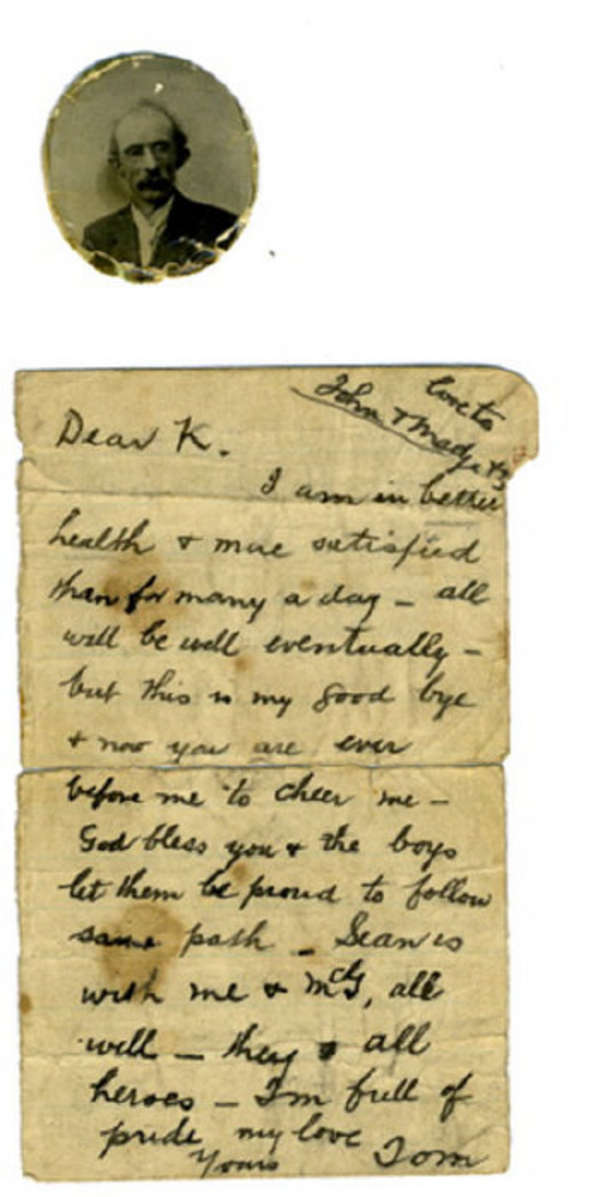 love to
John & Madge & 
Dear K.
I am in better
health & more satisfied
than for many a day – all
will be well eventually –
but this is my good bye
& now you are ever
before me to cheer me –
God bless you & the boys
let them be proud to follow
same path – Sean is
with me & McG, all
well – they all
heroes – I'm full of
pride my love
Yours Tom